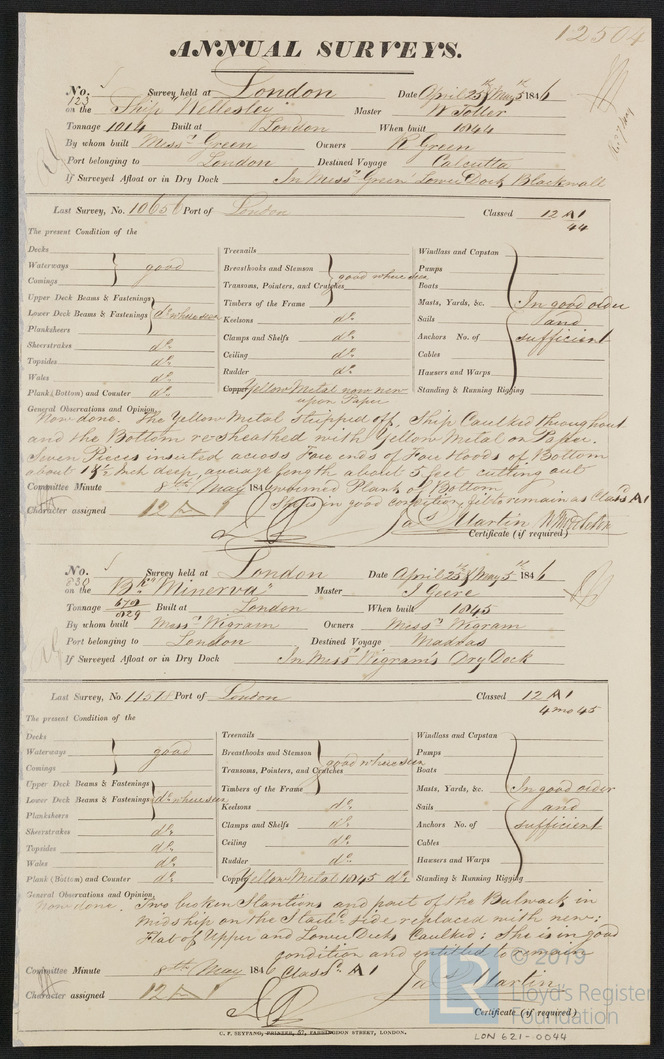 12504
ANNUAL SURVEYS.
No. 123 Survey held at London Date April 25th & May 5th 1846
on the Ship "Wellesley" Master W Toller
Tonnage 1014 Built at London When built 1844
By whom built Messrs Green Owners R Green
Port belonging to London Destined Voyage Calcutta
If Surveyed Afloat or in Dry Dock In Messrs Green' Lower Dock Blackwall
Last Survey, No. 10656 Port of London Classed 12 A1
44
The present Condition of the
Decks
Waterways good
Comings
Upper Deck Beams & Fastenings
Lower Deck Beams & Fastenings do where seen
Planksheers
Sheerstrakes do
Topsides do
Wales do
Plank (Bottom) and Counter do
Treenails
Breasthooks and Stemson good where seen
Transoms, Pointers, and Crutches
Timbers of the Frame
Keelsons do
Clamps and Shelfs do
Ceiling do
Rudder do
Copper Yellow Metal now new
upon Paper
Windlass and Capstan
Pumps
Boats
Masts, Yards, &c. In good order
Sails and
Anchors No. of sufficient
Cables
Hausers and Warps
Standing & Running Rigging
General Observations and Opinion,
Now done. The Yellow Metal stripped off, Ship Caulked throughout
and the Bottom resheathed with Yellow Metal on Paper.
Seven Pieces inserted across Fore ends of Fore Hoods of Bottom
about 1½ Inch deep, average length about 5 feet cutting out
wormed Plank of Bottom
Committee Minute 8th May 1846
Ship is in good condition, fit to remain as Classd A1
Character assigned 12 A 1
Jas Martin
Certificate (if required)
No. 838 Survey held at London Date April 25th & May 5th 1846
on the Bk "Minerva" Master J Geere
Tonnage 670/829 Built at London When built 1845
By whom built Messrs Wigram Owners Messrs Wigram
Port belonging to London Destined Voyage Madras
If Surveyed Afloat or in Dry Dock In Messrs Wigram's Dry Dock
Last Survey, No. Port of London Classed 12 A1
4 mo 45
The present Condition of the
Decks
Waterways good
Comings
Upper Deck Beams & Fastenings
Lower Deck Beams & Fastenings do where seen
Planksheers
Sheerstrakes do
Topsides do
Wales do
Plank (Bottom) and Counter do
Treenails
Breasthooks and Stemson good where seen
Transoms, Pointers, and Crutches
Timbers of the Frame
Keelsons do
Clamps and Shelfs do
Ceiling do
Rudder do
Copper Yellow Metal 1045 do
Windlass and Capstan
Pumps
Boats
Masts, Yards, &c. In good order
Sails and
Anchors No. of sufficient
Cables
Hausers and Warps
Standing & Running Rigging
General Observations and Opinion,
Now done. Two broken Stantions and part of the Bulwark in
midship on the Starbd side replaced with new;
Flat of Upper and Lower Decks Caulked; She is in good
condition and entitled to remain
Committee Minute 8th May 1846 Classd A1
Character assigned 12 A 1
Jas Martin
Certificate (if required)
C. F. SEYFANG, PRINTER, 57, FARRINGDON STREET, LONDON.
LON 621-0044
© 2019
Lloyd's Register
Foundation
LR